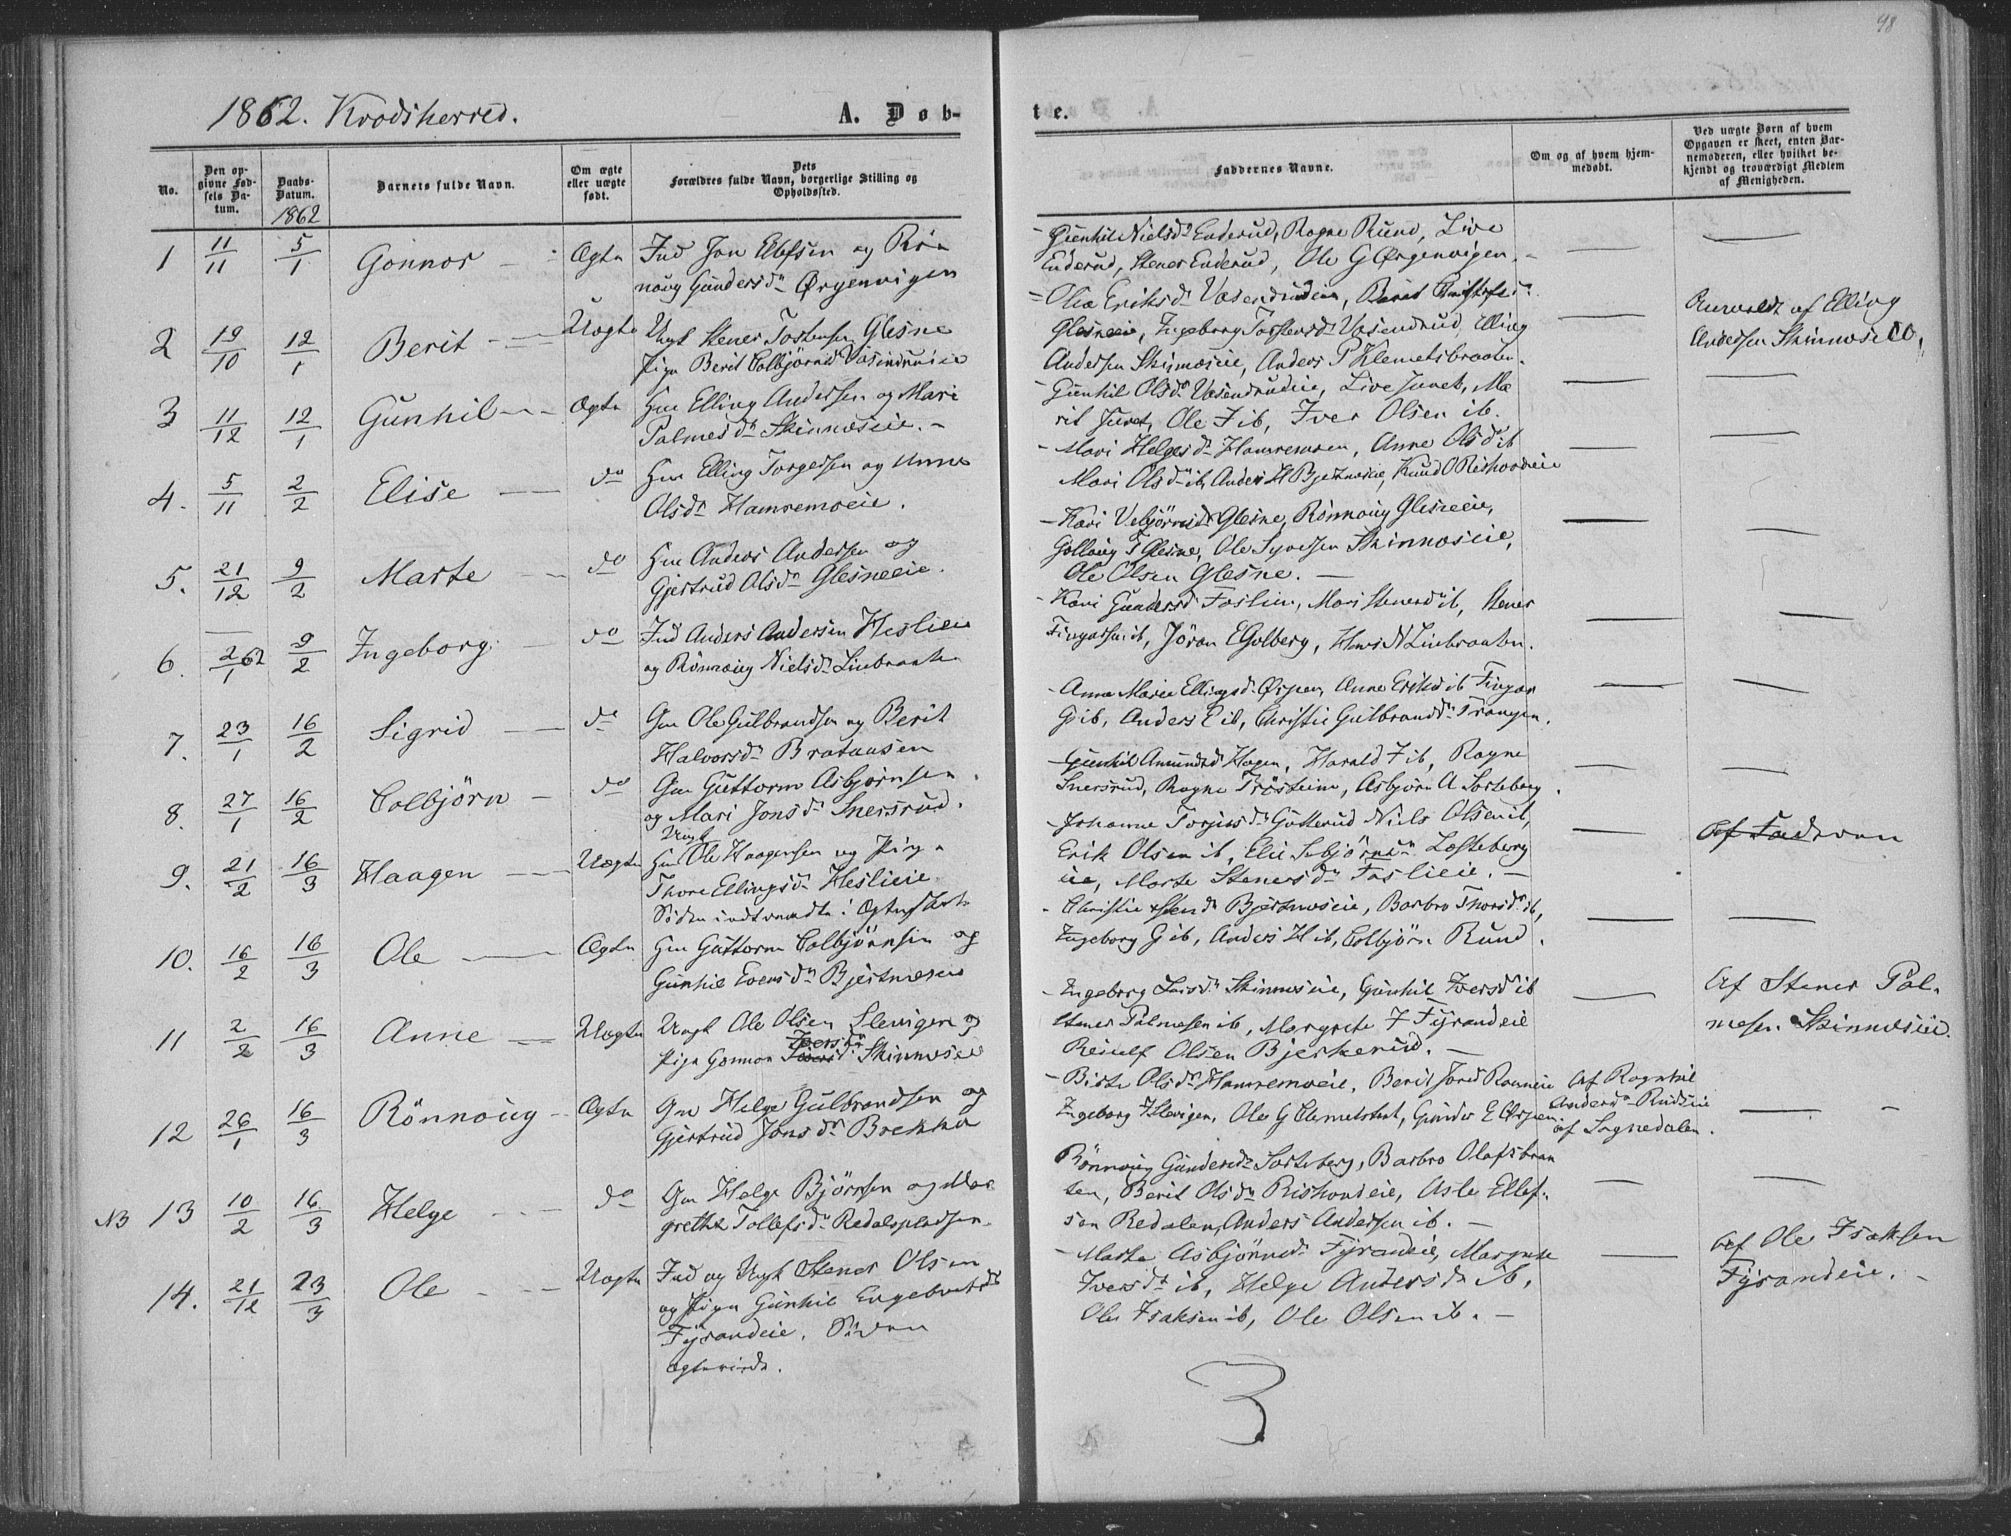 98
1862. Krødsherred.
A. Døb-
te.
No.
Den op-
givne Fød-
sels Da-
tum.
Daabs-
Datum.
1862
Barnets fulde Navn.
Om ægte
eller uægte
født.
Dets
Forældres fulde Navn, borgerlige Stilling og
Opholdssted.
Faddernes Navne.
Om og af hvem hjem-
medøbt.
Ved uægte Børn af hvem
Opgaven er skeet, enten Bar-
nemoderen, eller hvilket be-
kjendt og troværdigt Medlem
af Menigheden.
1 11/11 5/1 Gonnor Ægte Ind Jon Ellefsen og Røn
noug Gundersdr Ørgenvigen
Gunhil Nielsdr Enderud, Ragne Rund, Live
Enderud, Stener Enderud, Ole G Ørgenvigen.
2 19/10 12/1 Berit Uægte Ungk Stener Tostensen Glesne
Pige Berit Colbjørnsd Væsendrudeie
Olia Eriksdr Væsendrudeie, Berit
Glesneeie, Ingeborg Torstensdr Væsendrud, Elling
Andersen Skinnæseie, Anders P Klemetsbraaten.
Anmeldt af Elling
Andersen Skinnæseie.
3 11/12 12/1 Gunhil Ægte Hm Elling Andersen og Mari
Palmesdr Skinnæseie.
Gunhil Olsdr Væsendrudeie, Live Juret, Ma
rit Juret, Ole I ib, Iver Olsen ib.
4. 5/11 2/2 Elise do Hm Elling Torgersen og Anne
Olsdr Hamremoeie.
Mari Helgesdr Hamremoen, Anne Olsdr ib
Mari Olsdr ib, Anders H Bjertnæseie, Knud O Rishovdeie
5. 21/12 9/2 Marte do Hm Anders Andersen og
Gjertrud Olsdr Glesneeie.
Kari Vebjørnsdr Glesne, Rønnoug Glesneeie,
Golloug T Glesne, Ole Syversen Skinnæseie,
Ole Olsen Glesne.
6. 2/1 62 9/2 Ingeborg do Ind Anders Andersen Heslien
og Rønnoug Nielsdr Linbraate
Kari Gundersd Foslien, Mari Stenersd ib, Stener
Fingarsen ib, Jøran E Golberg, Hans N Linbraaten.
7. 23/1 16/2 Sigrid do Gm Ole Gulbrandsen og Berit
Halvorsdr Brataasen
Anne Marie Ellingsdr Ørpen, Anne Eriksd ib Fingar
G ib, Anders E ib, Christie Gulbrandsdr Trangen.
8. 27/1 16/2 Colbjørn do Gm Guttorm Asbjørnsen
og Mari Jonsdr Snersrud.
Gunhil Amundsd Hagen, Harald I ib, Ragne
Snersrud, Ragne Trøsteim, Asbjørn A Sorteberg.
9. 21/2 16/3 Haagen Uægte
Ungk
Hm Ole Haagensen og Pige
Thore Ellingsdr Heslieie.
Siden indtraadte i Ægteskab
Johanne Torjusdr Gutterud Niels Olsen ib,
Erik Olsen ib, Elie Sebjørnsdr Lesteberg
eie, Marte Stenersdr Foslieie.
Af Faderen
10. 16/2 16/3 Ole Ægte Hm Guttorm Colbjørnsen og
Gunhil Eversdr Bjertnæseie
Christie Stendr Bjertnæseie, Barbro Thorsdr ib,
Ingeborg G ib, Anders H ib, Colbjørn Rund.
11 2/2 16/3 Anne Uægte Ungk Ole Olsen Slevigen og
Iversdr
Pige Gonnor Skinnæseie
Ingeborg Larsdr Skinnæseie, Gunhil Iversd ib
Stener Palmesen ib, Margrete I Fyrandeie
Reiulf Olsen Bjerkerud.
Af Stener Pal-
mesen Skinnæseie.
12 26/1 16/3 Rønnoug Ægte Gm Helge Gulbrandsen og
Gjertrud Jonsdr Brekka
Birte Olsdr Hamremoeie, Berit Jonsd Ramneie
Ingeborg Slevigen, Ole G Clemetstad, Gunder E Ørpen
Af Ragnhil
Andersdr Rudseie
af Sognedalen.
NB 13 10/2 16/3 Helge do Gm Helge Bjørnsen og Mar
grethe Tollefsdr Redalspladsen.
Rønnoug Gundersdr Sorteberg, Barbro Olafsbraa
ten, Berit Olsdr Rishovdeie, Asle Ellef-
sen Redalen, Anders Andersen ib.
14. 21/12 23/3 Ole Uægte Ind og Ungk Stener Olsen
og Pige Gunhil Engebretsdr
Fyrandeie. Siden
ægteviede.
Marta Asbjørnsdr Fyrandeie, Margrete
Iversdr ib, Helge Andersdr ib,
Ole Isaksen ib, Ole Olsen ib.
Af Ole Isaksen
Fyrandeie.
3